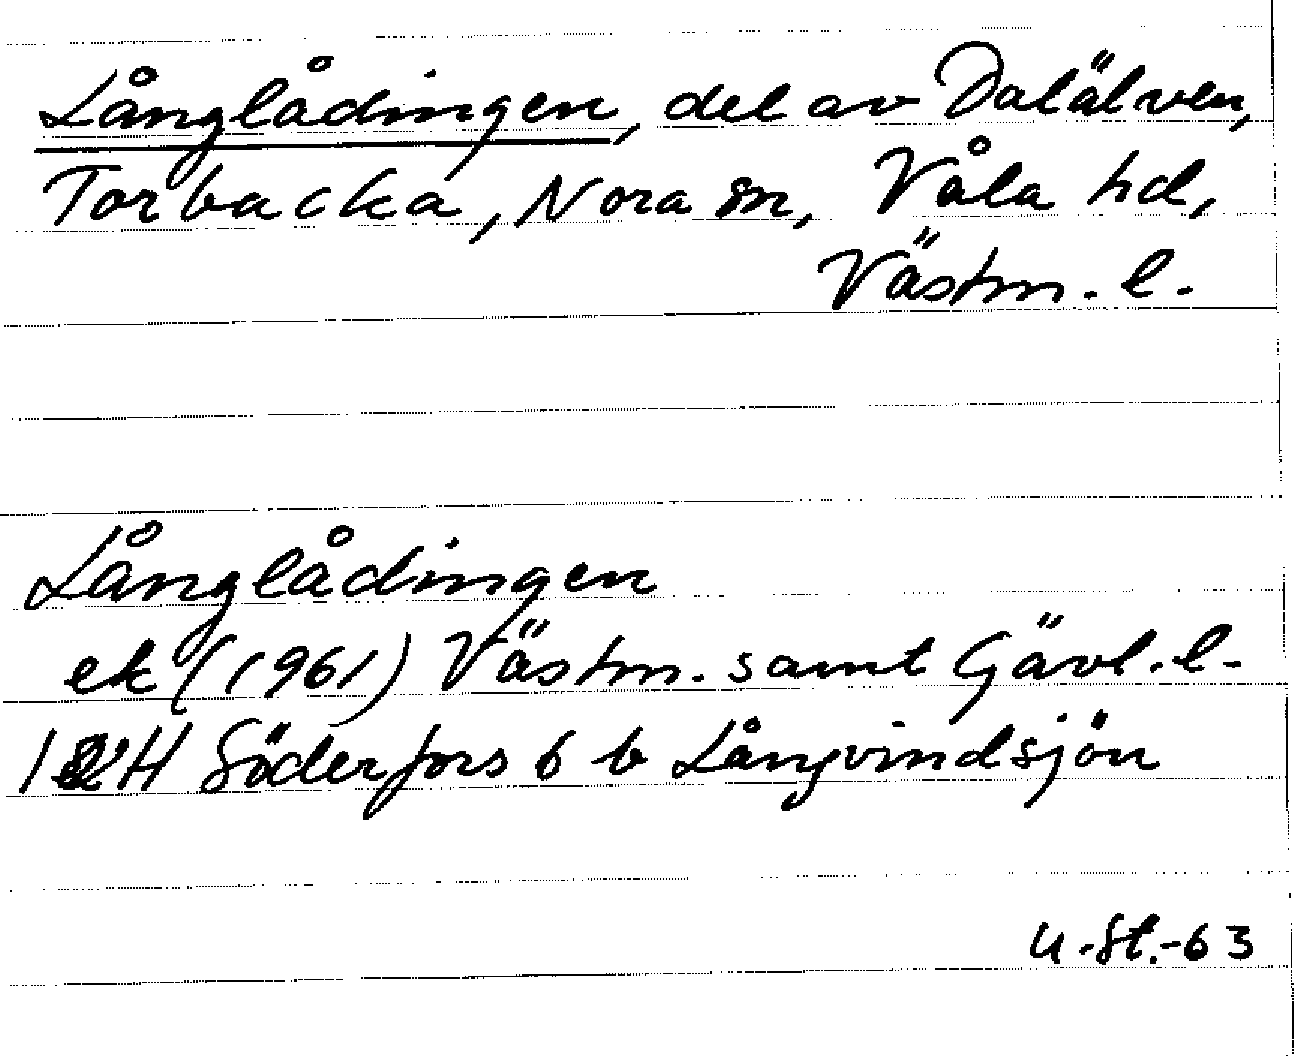 Långlådingen, del av Dalälven,
Torbacka, Nora sn, Våla hd,
Västm. l.
Långlådingen
ek (1961) Västm. samt Gävl. l.
Söderfors 6 b Långvindsjön
U. St. -63